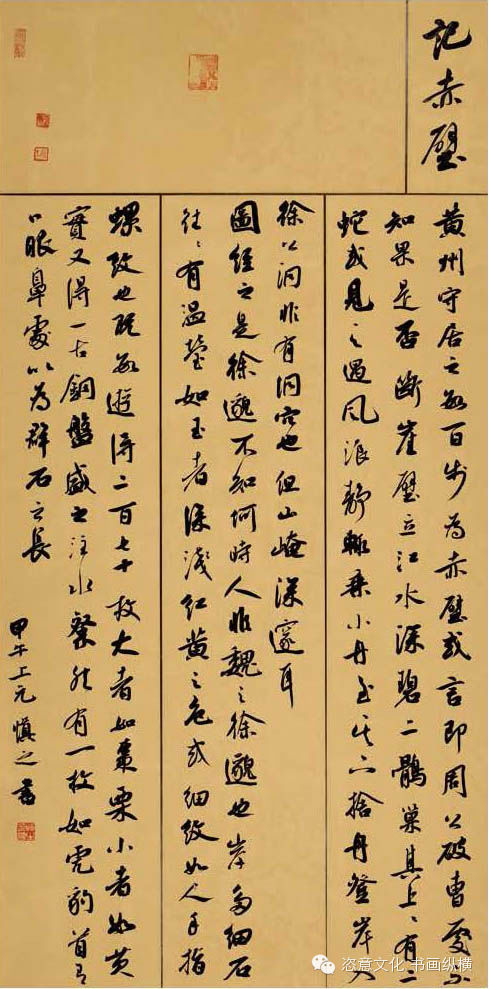 記赤壁
黃州守居之數百步為赤壁或言即周公破曹處不
知果是否斷崖壁立江水深碧二鶻巢其上〻有二
蛇或見之遇風浪靜輒乘小舟至其下捨舟登岸入
徐公洞非有洞穴也但山崦深邃耳
圖經云是徐邈不知何時人非魏之徐邈也岸多細石
往〻有溫瑩如玉者深淺紅黃之色或細紋如人手指
螺紋也既數遊得二百七十枚大者如棗栗小者如芡
實又得一古銅盤盛之注水粲然有一枚如虎豹首有
口眼鼻處以為群石之長
甲午上元慎之書
恣意文化 书画纵横